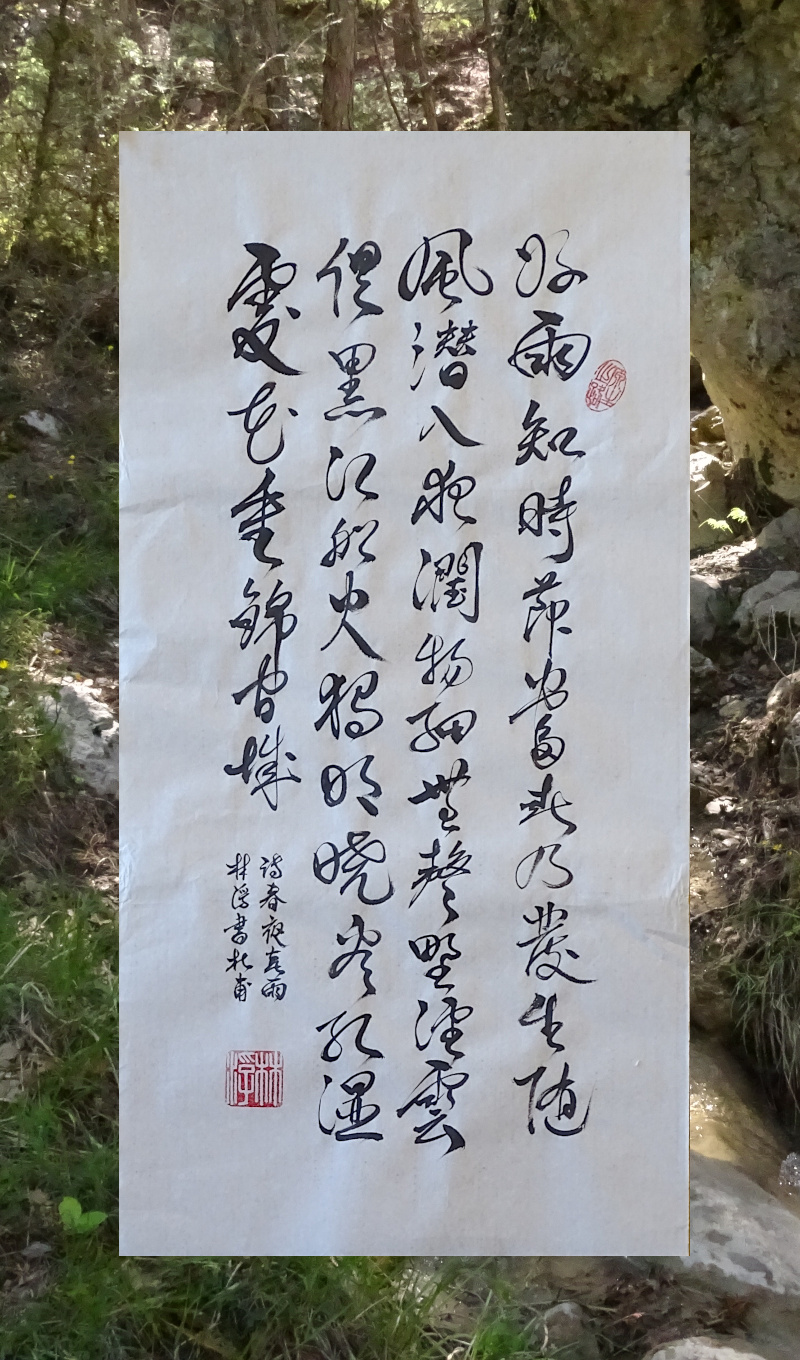 好雨知時節當春乃發生随
風潜入夜潤物細無聲野徑雲
俱黑江船火獨明曉看紅湿
處花重錦官城
林浮書杜甫
詩春夜喜雨
林浮